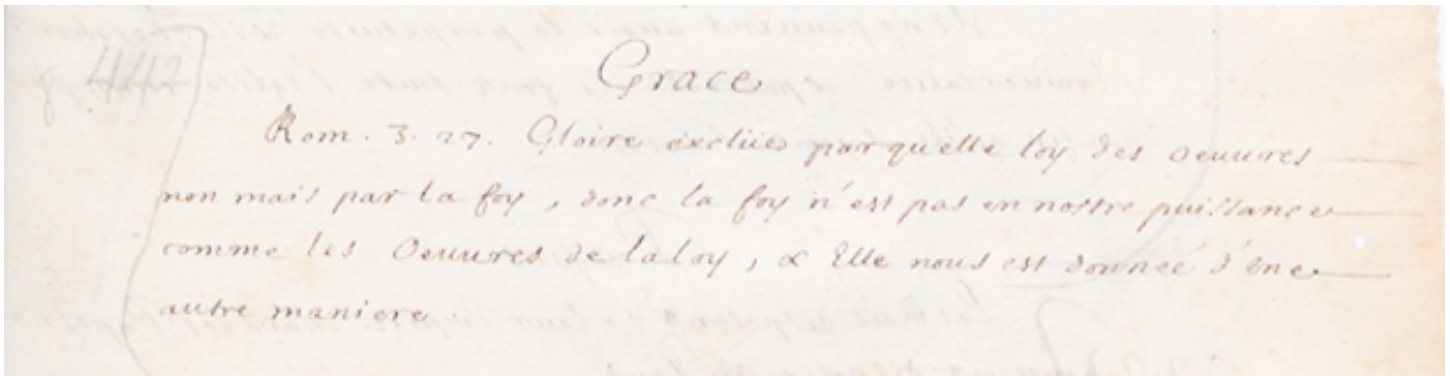 442
Grace
Rom. 3. 27. Gloire exclüe par quelle loy des oeuures
non mais par la foy, donc la foy n'est pas en nostre puissance
comme les Oeuures de la loy, & Elle nous est donnée d'vne
autre maniere.